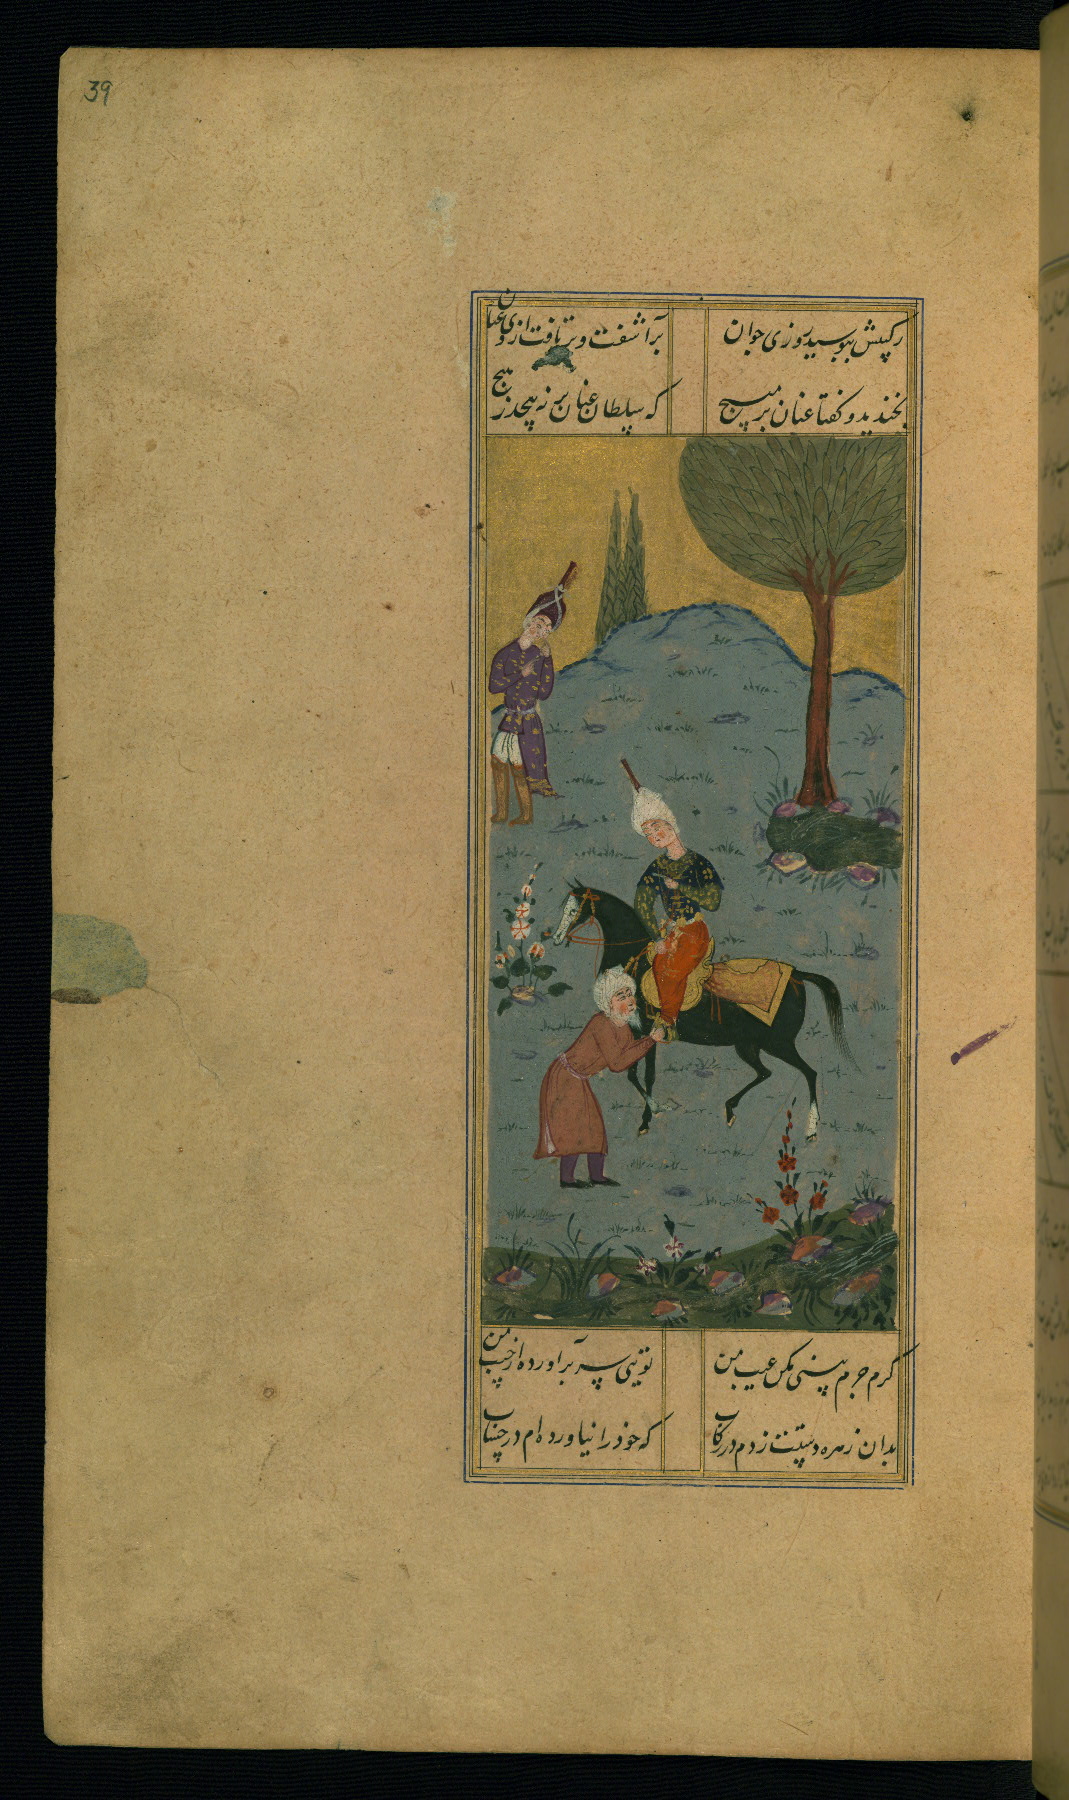 39
رکیبش ببوسید روزی جوان برآشفت و برتافت از وی عنان
بخندید و گفتا عنان بر مپیچ که سلطان عنان بر نه پیچد ز هیچ
گرم جرم بینی مکن عیب من تویی سر برآورده از جیب من
بدان زهره دستت زدم در رکاب که خود را نیاورده ام در حساب